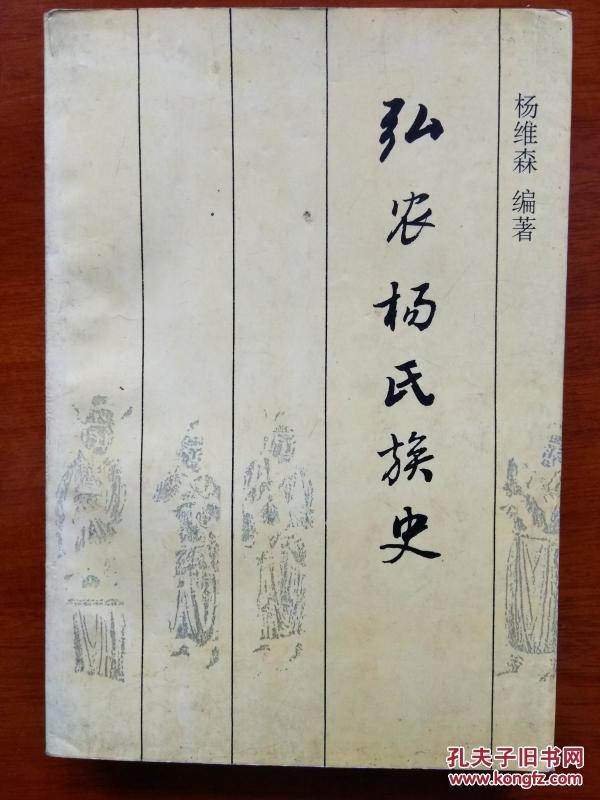 杨维森 编著
弘农杨氏族史
孔夫子旧书网
www.kongfz.com